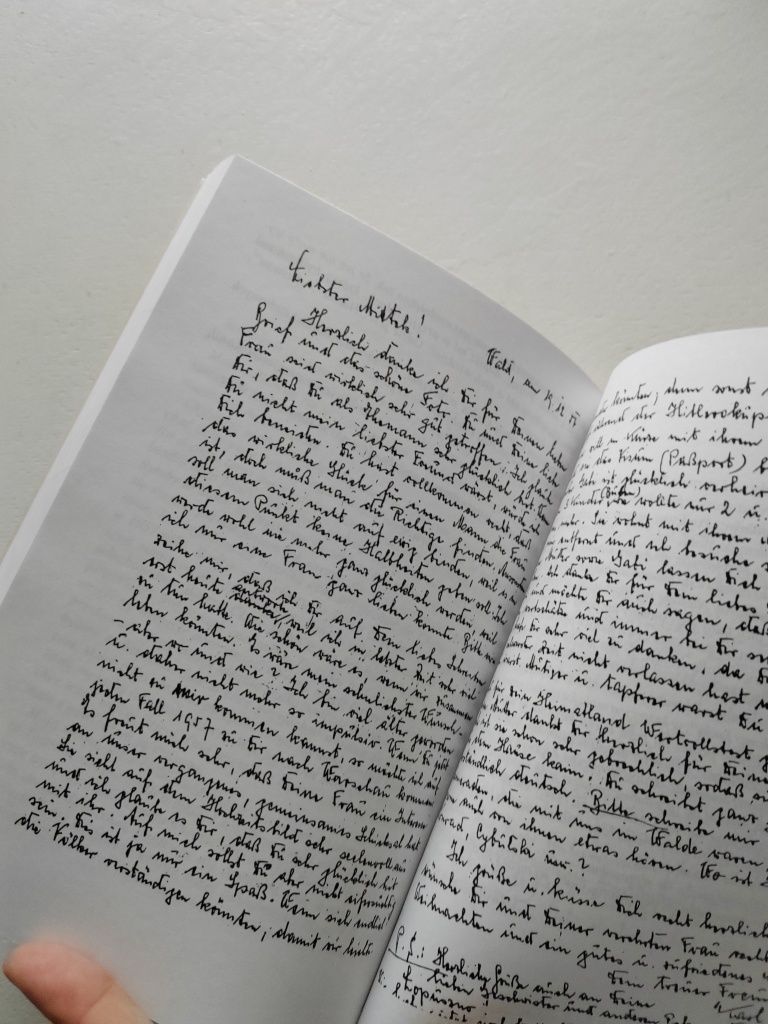 Liebster Mietek!
Wald, am
Herzlich danke ich Dir für Deinen lieben
Brief und das schöne Foto. Du und Deine liebe
Frau seid wirklich sehr gut getroffen. Ich glaube
Dir, daß Du als Ehemann sehr glücklich bist. Wenn
Du nicht mein liebster Freund wärst, würde ich
Dich beneiden. Du hast vollkommen recht, daß
das wirkliche Glück für einen Mann die Frau
ist, doch muß man die Richtige finden. Ansonsten
soll man sich nicht auf ewig binden, weil es in
diesem Punkt keine Halbheiten geben soll. Ich
werde wohl nie mehr ganz glücklich werden, weil
ich nur eine Frau ganz lieben konnte. Bitte ver-
zeihe mir, daß ich Dir auf Dein liebes Schreiben
erst heute antworte, weil ich in letzter Zeit sehr viel
zu tun hatte. Wie schön wäre es, wenn wir zusammen
leben könnten. Es wäre mein sehnlichster Wunsch –
aber wo und wie? Ich bin viel älter geworden
u. daher nicht mehr so impulsiv. Wenn Du jetzt
nicht zu mir kommen kannst, so möchte ich auf
jeden Fall 1957 zu Dir nach Warschau kommen.
Es freut mich sehr, daß Deine Frau ein Interesse
an unser vergangenes, gemeinsames Schicksal hat.
Sie sieht auf dem Hochzeitsbild sehr seelenvoll aus
und ich glaube es Dir, daß Du sehr glücklich bist
mit ihr. Auf mich sollst Du aber nicht eifersüchtig
sein. Das ist ja nur ein Spaß. Wenn sich endlich
die Völker verständigen könnten, damit wir
könnten, denn sonst
während der
soll in Kürze mit ihrem
in das Kino (Paßport)
Jahr ist glücklich verheir
Kinder wollte nur 2 u.
mehr. Sie wohnt mit ihrer
entfernt und ich besuche s
sowie Gati lassen Dich
Ich danke Dir für Dein liebes
und möchte Dir auch sagen, daß
und immer bei Dir
ich Dir aber viel zu danken, da D
Zeit nicht verlassen hast
mutiger u. tapferer warst Du
für sein Heimatland Wertvollstes
dankt Dir herzlich für Deine
ist sie schon sehr gebrechlich, sodaß sie
dem Hause kann. Du schreibst ganz
ständlich deutsch. Bitte schreibe mir
raden, die mit uns im Walde waren
mich von ihnen etwas hören. Wo ist
Cybulska usw.?
Ich grüße u. küsse Dich recht herzlich
wünsche Dir und Deiner verehrten Frau recht
Weihnachten und ein gutes u. zufriedenes
Dein treuer Freun
Karl
P.S.: Herzliche Grüße auch an Deine
lieben Geschwister und anderen